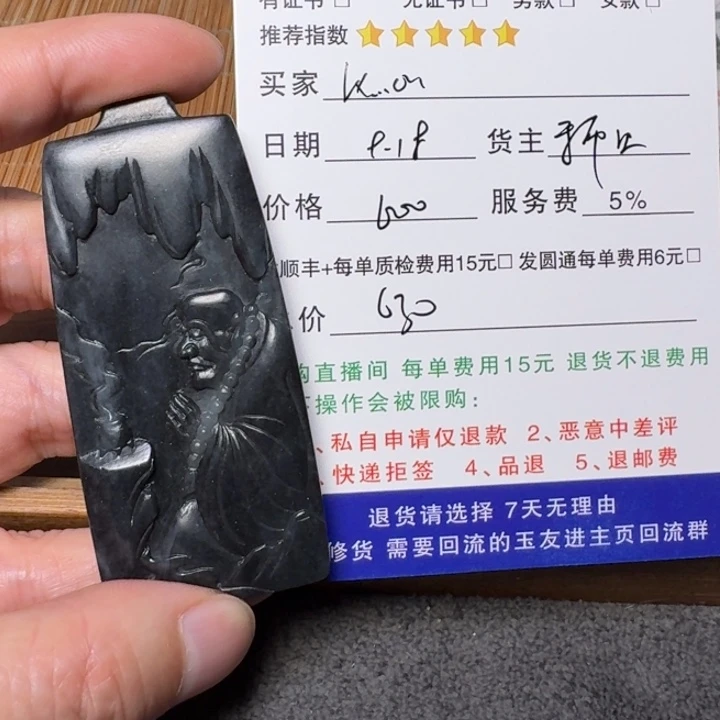 有证书□ 无证书□ 男款□ 女款□
推荐指数
买家
日期 9.19 货主
价格 600 服务费 5%
顺丰+每单质检费用15元□ 发圆通每单费用6元□
价 630
购直播间 每单费用15元 退货不退费用
操作会被限购:
、私自申请仅退款 2、恶意中差评
、快递拒签 4、品退 5、退邮费
退货请选择 7天无理由
修货 需要回流的玉友进主页回流群